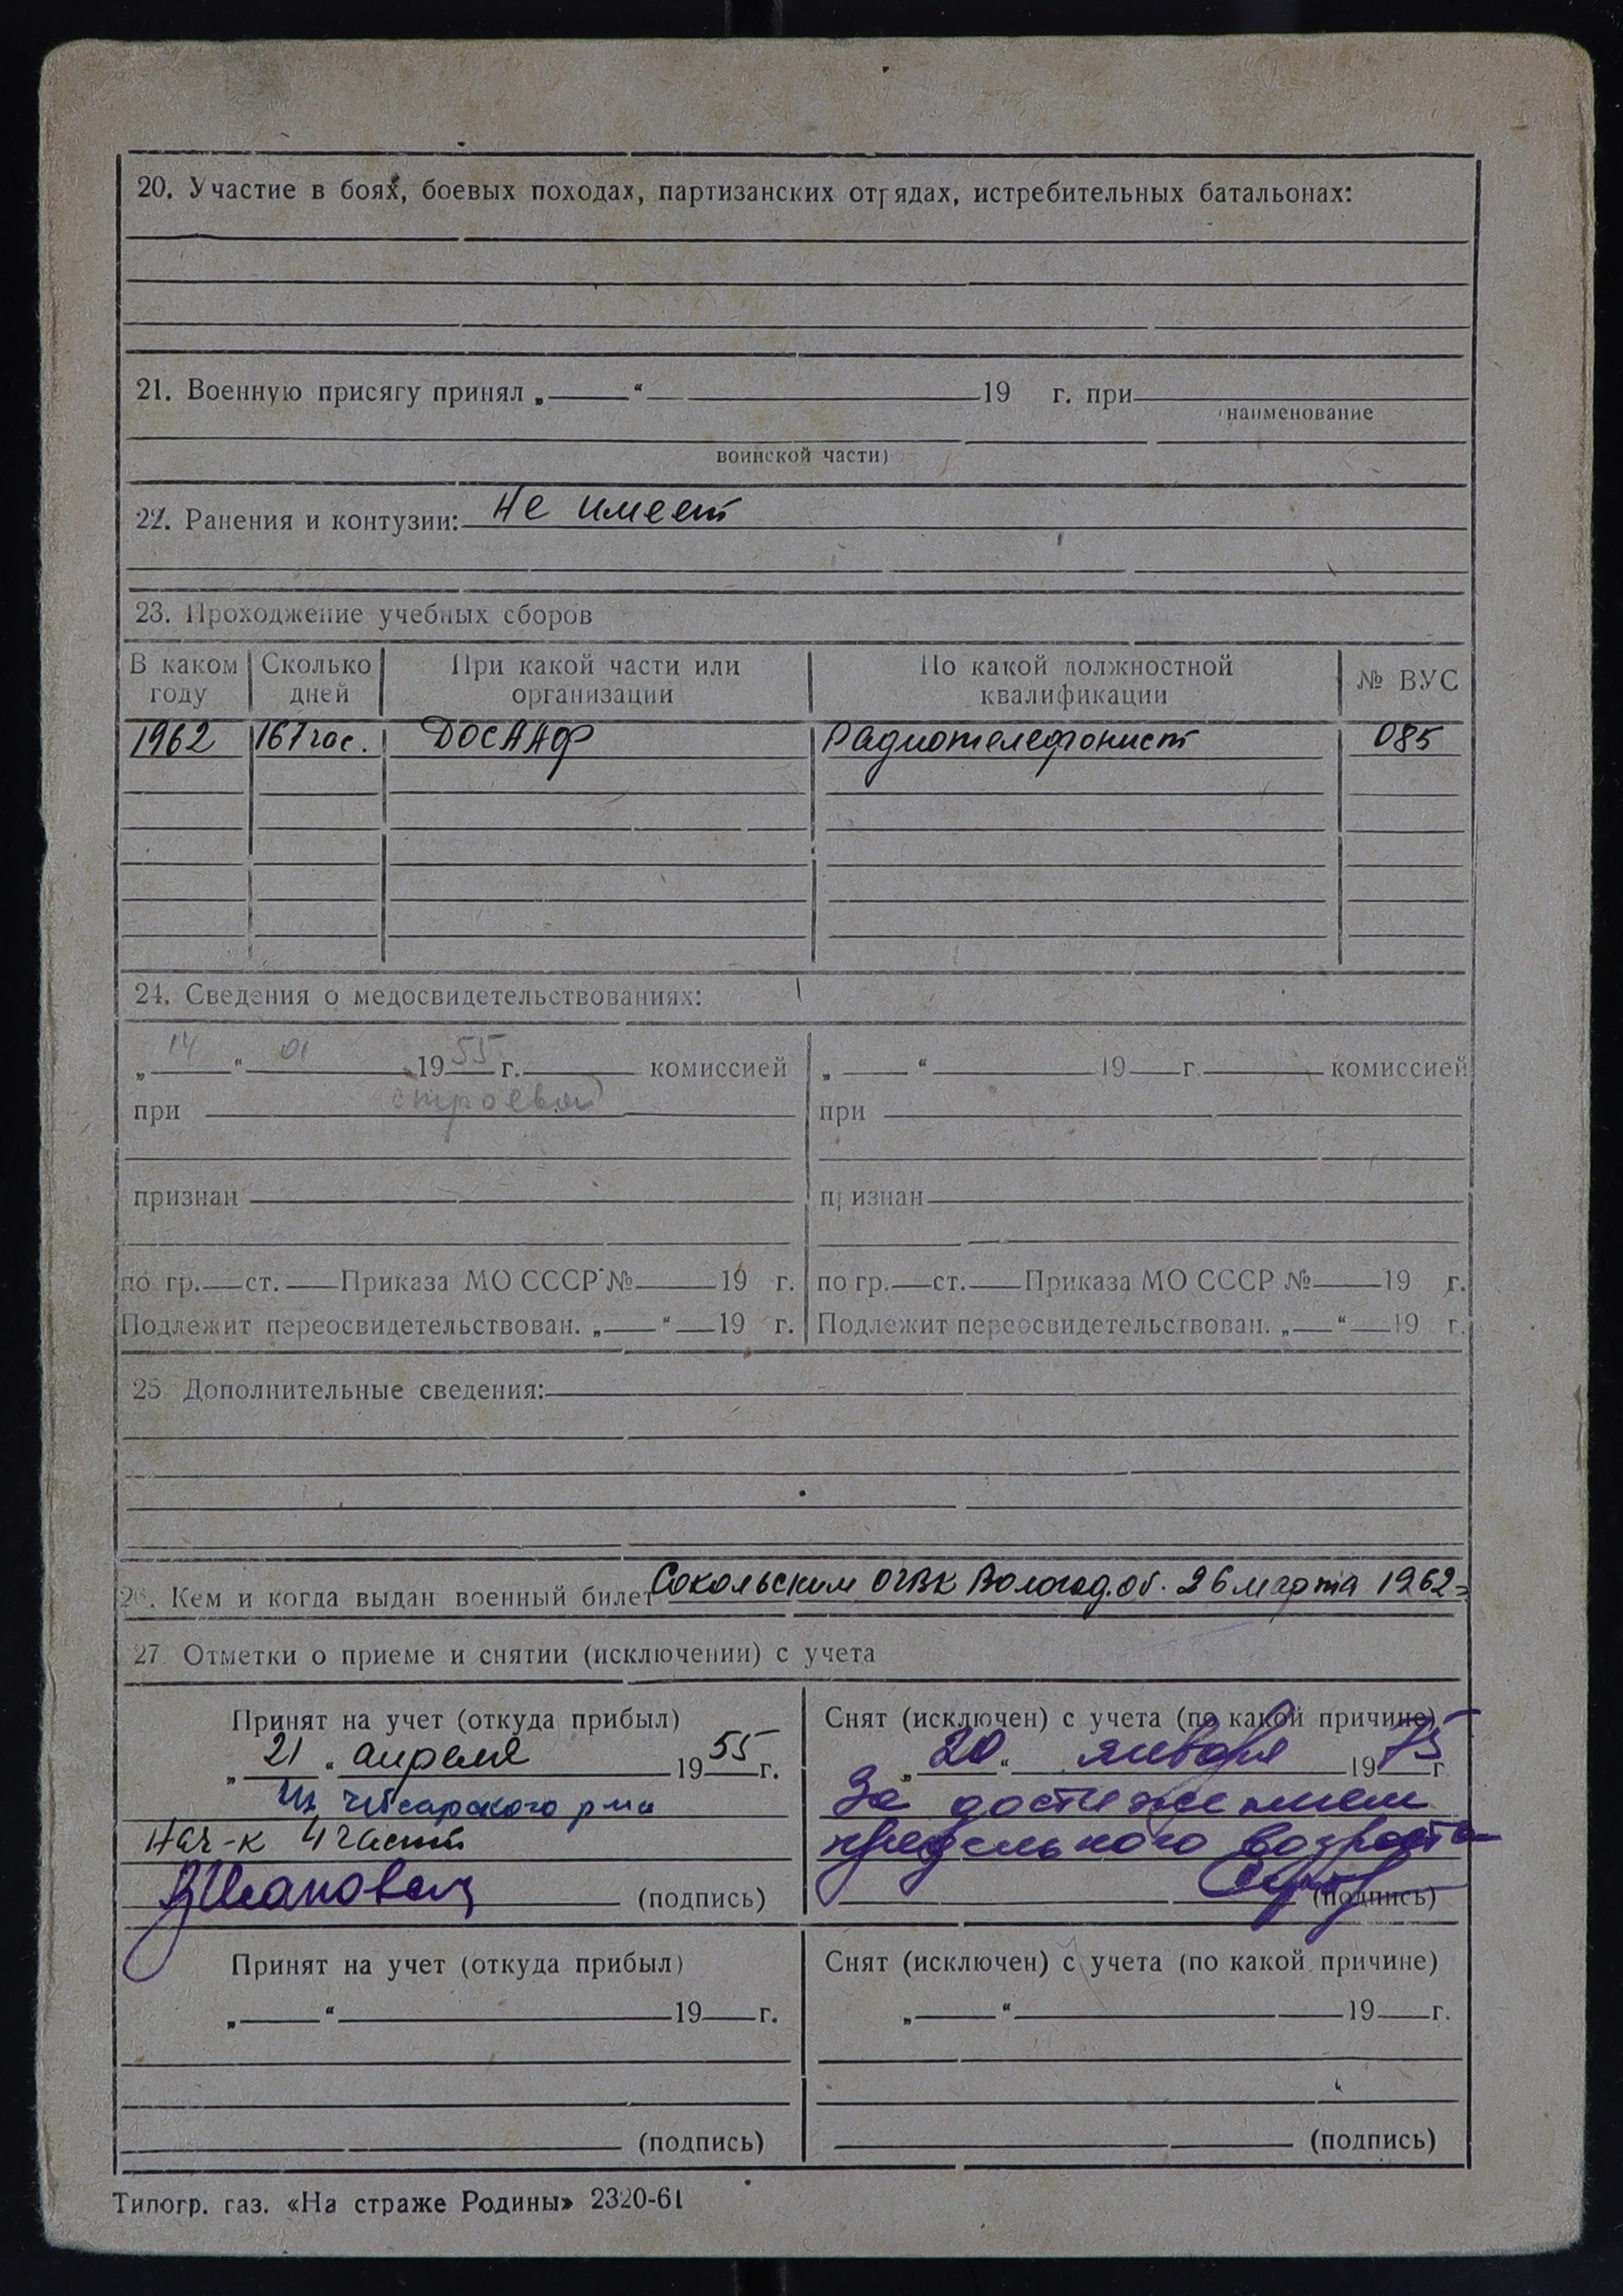 20. Участие в боях, боевых походах, партизанских отрядах, истребительных батальонах:
21. Военную присягу принял „ “ 19 г. при
наименование
воинской части)
22. Ранения и контузии: Не имеет
23. Прохождение учебных сборов
В каком году Сколько дней При какой части или организации По какой должностной квалификации № ВУС
1962 167 час. ДОСААФ Радиотелефонист 085
24. Сведения о медосвидетельствованиях:
„ 14 “ 01 1955 г. комиссией „ “ 19 г. комиссией
при строевой при
признан признан
по гр. ст. Приказа МО СССР № 19 г. по гр. ст. Приказа МО СССР № 19 г.
Подлежит переосвидетельствован. „ “ 19 г. Подлежит переосвидетельствован. „ “ 19 г.
25 Дополнительные сведения:
26. Кем и когда выдан военный билет Сокольским ОГВК Вологод. об. 26 марта 1962
27. Отметки о приеме и снятии (исключении) с учета
Принят на учет (откуда прибыл) Снят (исключен) с учета (по какой причине)
„ 21 “ апреля 1955 г. „ 20 “ января 1975 г
Из рма За достижением
Нач-к 4 части предельного возраста
(подпись) (подпись)
Принят на учет (откуда прибыл) Снят (исключен) с учета (по какой причине)
„ “ 19 г. „ “ 19 г.
(подпись) (подпись)
Типогр. газ. «На страже Родины» 2320-61